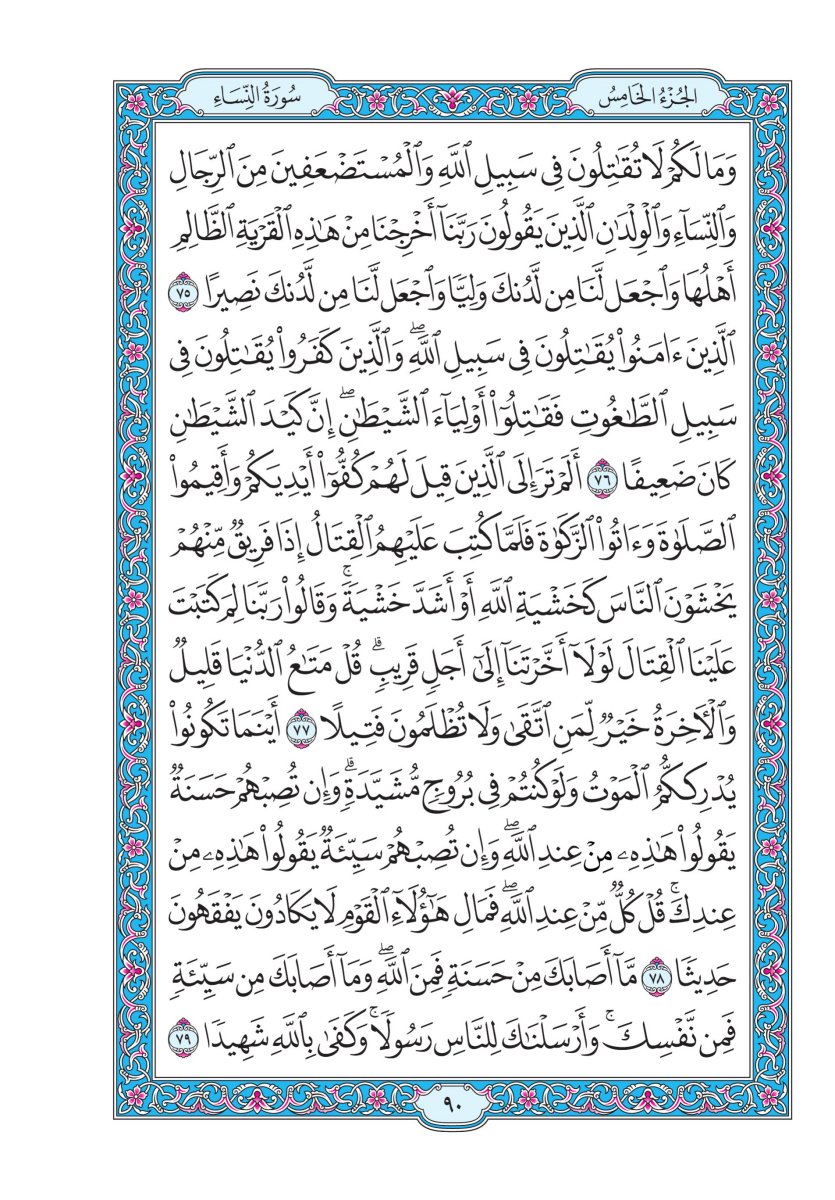 الجُزْءُ الخَامِسُ
سُورَةُ النِّسَاءِ
وَمَا لَكُمۡ لَا تُقَٰتِلُونَ فِي سَبِيلِ ٱللَّهِ وَٱلۡمُسۡتَضۡعَفِينَ مِنَ ٱلرِّجَالِ
وَٱلنِّسَآءِ وَٱلۡوِلۡدَٰنِ ٱلَّذِينَ يَقُولُونَ رَبَّنَآ أَخۡرِجۡنَا مِنۡ هَٰذِهِ ٱلۡقَرۡيَةِ ٱلظَّالِمِ
أَهۡلُهَا وَٱجۡعَل لَّنَا مِن لَّدُنكَ وَلِيّٗا وَٱجۡعَل لَّنَا مِن لَّدُنكَ نَصِيرًا ٧٥
ٱلَّذِينَ ءَامَنُواْ يُقَٰتِلُونَ فِي سَبِيلِ ٱللَّهِۖ وَٱلَّذِينَ كَفَرُواْ يُقَٰتِلُونَ فِي
سَبِيلِ ٱلطَّٰغُوتِ فَقَٰتِلُوٓاْ أَوۡلِيَآءَ ٱلشَّيۡطَٰنِۖ إِنَّ كَيۡدَ ٱلشَّيۡطَٰنِ
كَانَ ضَعِيفًا ٧٦ أَلَمۡ تَرَ إِلَى ٱلَّذِينَ قِيلَ لَهُمۡ كُفُّوٓاْ أَيۡدِيَكُمۡ وَأَقِيمُواْ
ٱلصَّلَوٰةَ وَءَاتُواْ ٱلزَّكَوٰةَ فَلَمَّا كُتِبَ عَلَيۡهِمُ ٱلۡقِتَالُ إِذَا فَرِيقٞ مِّنۡهُمۡ
يَخۡشَوۡنَ ٱلنَّاسَ كَخَشۡيَةِ ٱللَّهِ أَوۡ أَشَدَّ خَشۡيَةٗۚ وَقَالُواْ رَبَّنَا لِمَ كَتَبۡتَ
عَلَيۡنَا ٱلۡقِتَالَ لَوۡلَآ أَخَّرۡتَنَآ إِلَىٰٓ أَجَلٖ قَرِيبٖۗ قُلۡ مَتَٰعُ ٱلدُّنۡيَا قَلِيلٞ
وَٱلۡأٓخِرَةُ خَيۡرٞ لِّمَنِ ٱتَّقَىٰ وَلَا تُظۡلَمُونَ فَتِيلًا ٧٧ أَيۡنَمَا تَكُونُواْ
يُدۡرِككُّمُ ٱلۡمَوۡتُ وَلَوۡ كُنتُمۡ فِي بُرُوجٖ مُّشَيَّدَةٖۗ وَإِن تُصِبۡهُمۡ حَسَنَةٞ
يَقُولُواْ هَٰذِهِۦ مِنۡ عِندِ ٱللَّهِۖ وَإِن تُصِبۡهُمۡ سَيِّئَةٞ يَقُولُواْ هَٰذِهِۦ مِنۡ
عِندِكَۚ قُلۡ كُلّٞ مِّنۡ عِندِ ٱللَّهِۖ فَمَالِ هَٰٓؤُلَآءِ ٱلۡقَوۡمِ لَا يَكَادُونَ يَفۡقَهُونَ
حَدِيثٗا ٧٨ مَّآ أَصَابَكَ مِنۡ حَسَنَةٖ فَمِنَ ٱللَّهِۖ وَمَآ أَصَابَكَ مِن سَيِّئَةٖ
فَمِن نَّفۡسِكَۚ وَأَرۡسَلۡنَٰكَ لِلنَّاسِ رَسُولٗاۚ وَكَفَىٰ بِٱللَّهِ شَهِيدٗا ٧٩
٩٠